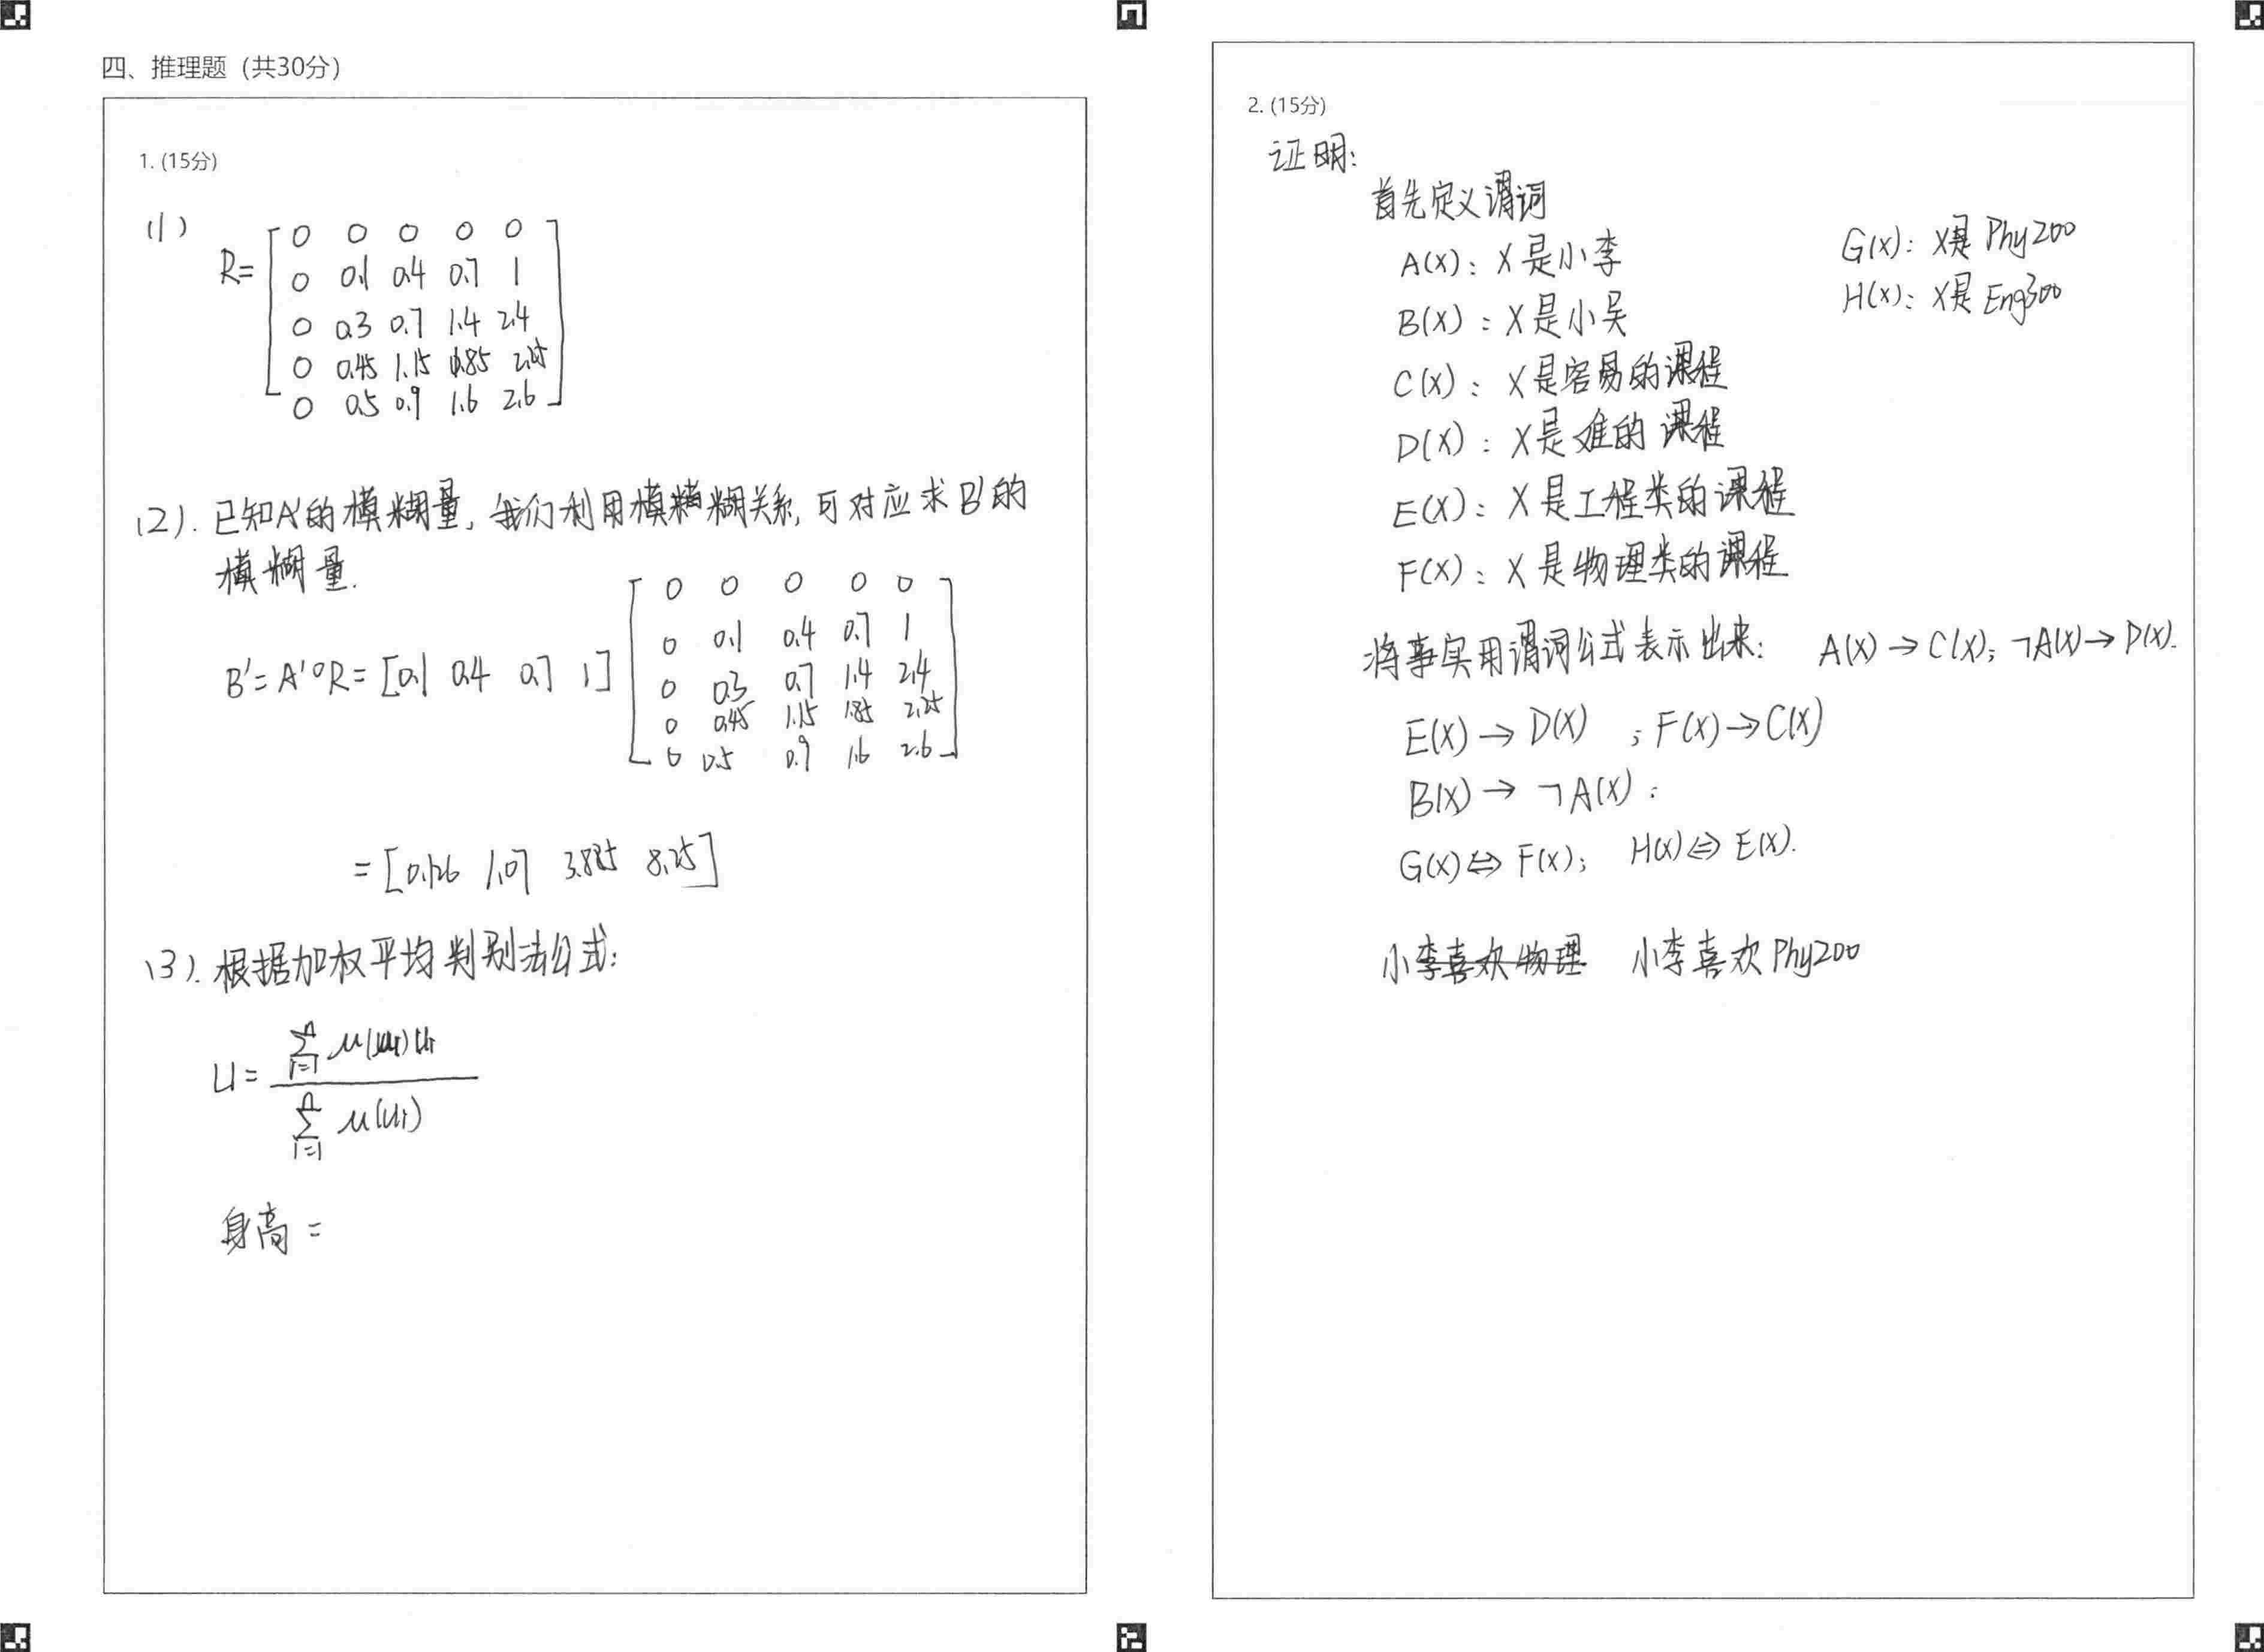 四、推理题（共30分）
1. (15分)
(1)
R=
0 0 0 0 0
0 0.1 0.4 0.7 1
0 0.3 0.7 1.4 2.4
0 0.45 1.15 1.85 2.25
0 0.5 0.9 1.6 2.6
(2). 已知A'的模糊量, 我们利用模糊关系, 可对应求B'的
模糊量.
0 0 0 0 0
0 0.1 0.4 0.7 1
B'=A'∘R=[0.1 0.4 0.7 1] 0 0.3 0.7 1.4 2.4
0 0.45 1.15 1.85 2.25
0 0.5 0.9 1.6 2.6
=[0.126 1.07 3.885 8.25]
(3). 根据加权平均判别法公式:
U= Σ(i=1..n) μ(ui)ui / Σ(i=1..n) μ(ui)
身高 =
2. (15分)
证明:
首先定义谓词
A(x): x是小李
B(x): x是小吴
C(x): x是容易的课程
D(x): x是难的课程
E(x): x是工程类的课程
F(x): x是物理类的课程
G(x): x是Phy200
H(x): x是Eng300
将事实用谓词公式表示出来: A(x)→C(x); ¬A(x)→D(x).
E(x)→D(x) ; F(x)→C(x)
B(x)→¬A(x);
G(x)⇔F(x); H(x)⇔E(x).
小李喜欢物理 小李喜欢Phy200